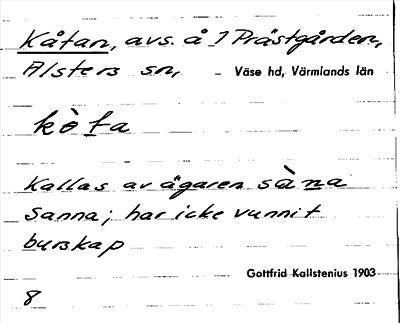 Kåtan, avs. å 1 Prästgården,
Alsters sn, Väse hd, Värmlands län
kò̀ta
Kallas av ägaren sàna
Sanna; har icke vunnit
burskap
Gottfrid Kallstenius 1903
8